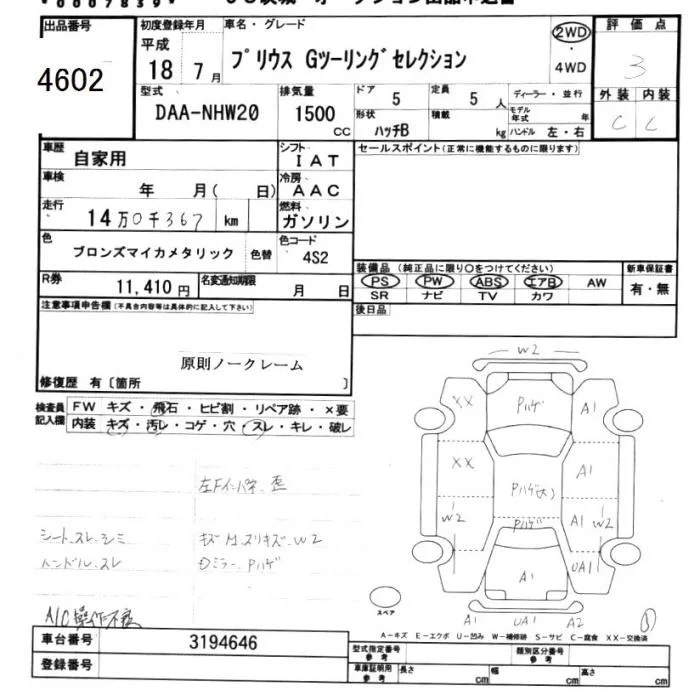 出品番号
4602
初度登録年月
平成
18 7月
車名・グレード
プリウス Gツーリングセレクション
2WD
4WD
評価点
3
外装 内装
C C
型式
DAA-NHW20
排気量
1500
CC
ドア 5
定員 5 人
ディーラー・並行
形状 ハッチB
積載 kg
モデル年式 年
ハンドル 左・右
車歴 自家用
シフト IAT
セールスポイント(正常に機能するものに限ります)
車検 年 月( 日)
冷房 AAC
走行 14万0千367 km
燃料 ガソリン
色 ブロンズマイカメタリック 色替
色コード 4S2
R券 11,410円
名変通知期限 月 日
装備品(純正品に限り○をつけてください)
PS PW ABS エアB AW
SR ナビ TV カワ
新車保証書
有・無
後日品
注意事項申告欄(不具合内容等は具体的に記入して下さい)
原則ノークレーム
修復歴 有〔箇所 〕
検査員記入欄
FW キズ・飛石・ヒビ割・リペア跡・×要
内装 キズ・汚レ・コゲ・穴・スレ・キレ・破レ
シート、スレ、シミ
ハンドル、スレ
W2
XX
Pハゲ
A1
XX
A1
Pハゲ(大)
W2
Pハゲ
A1
W2
A1
UA1
A1
UA1
A2
スペア
A-キズ E-エクボ U-凹み W-補修跡 S-サビ C-腐食 XX-交換済
車台番号 3194646
登録番号
型式指定番号 参考
類別区分番号 参考
車庫証明用 参考
長さ cm
幅 cm
高さ cm